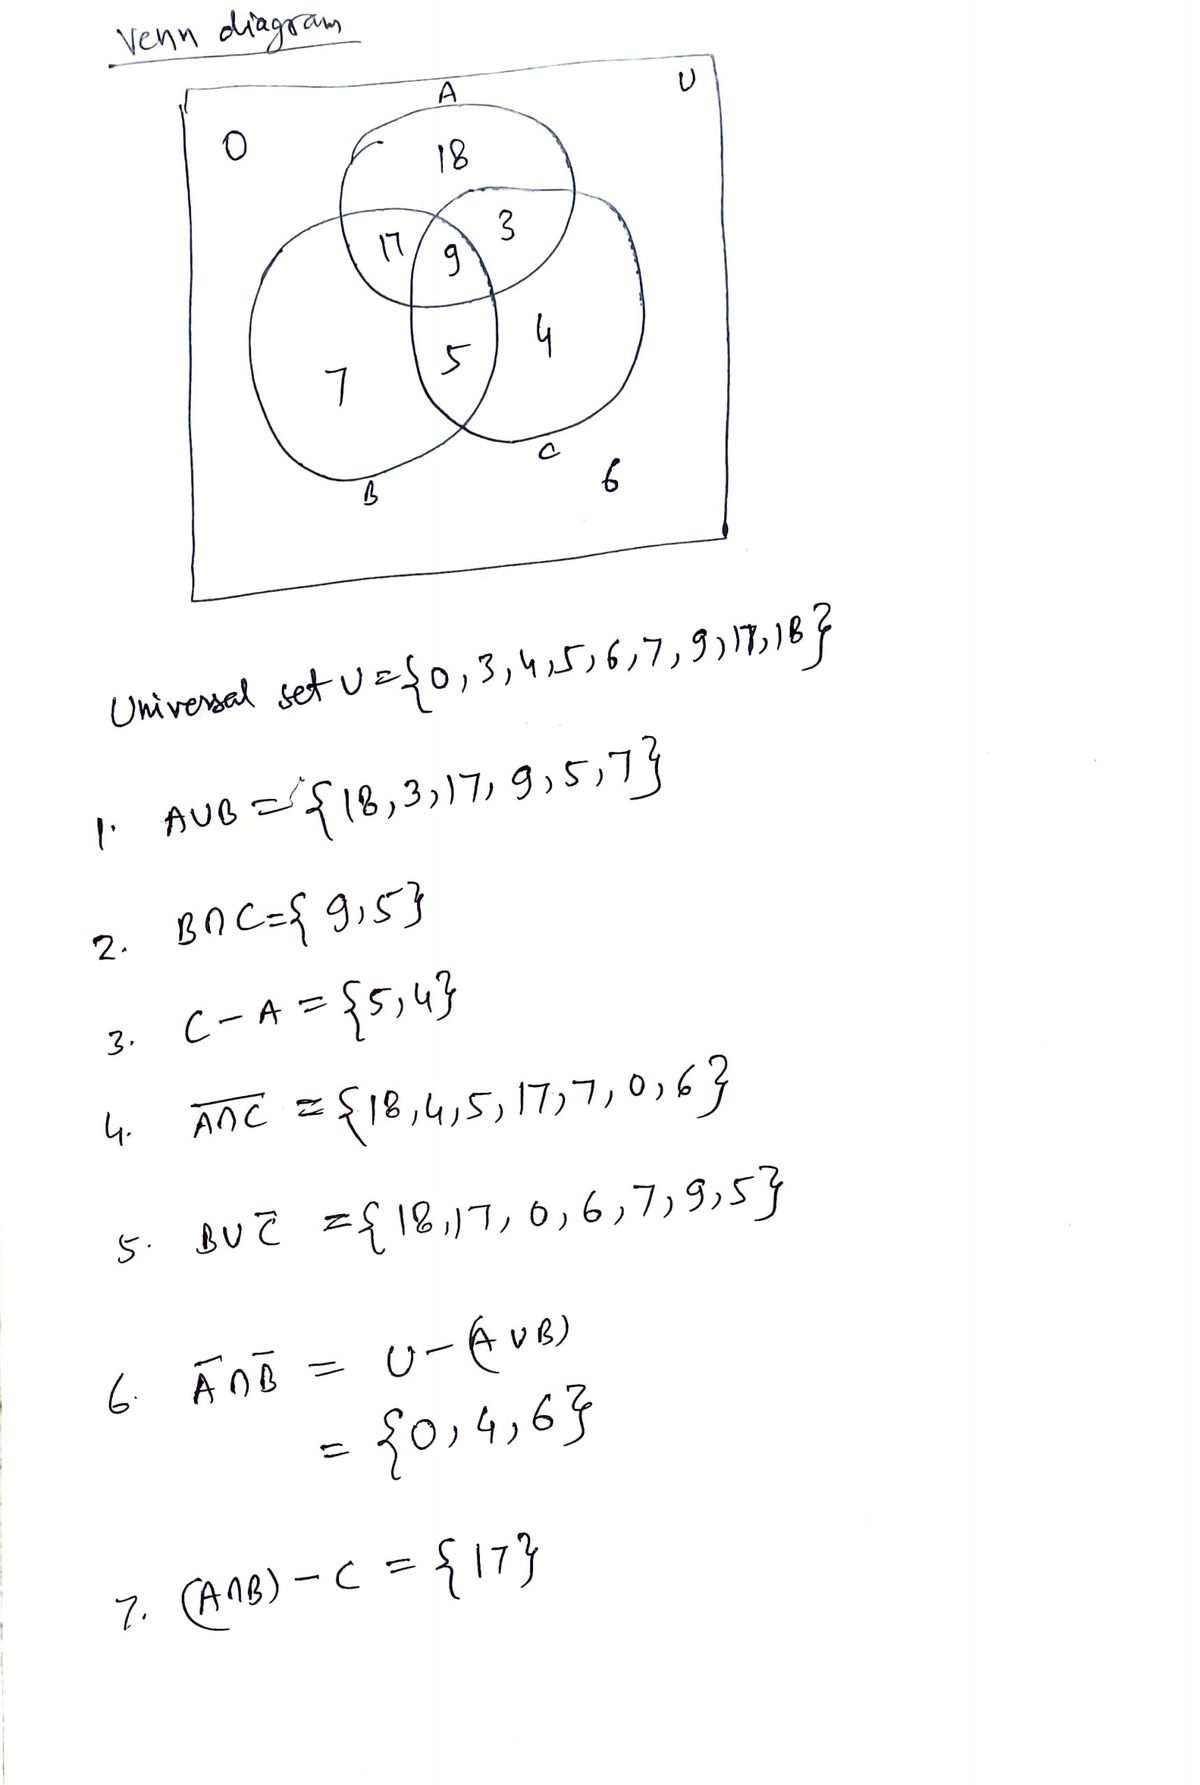 Venn diagram
A
U
0
18
3
17
9
4
5
7
C
6
B
Universal set U = {0, 3, 4, 5, 6, 7, 9, 17, 18}
1. A∪B = {18, 3, 17, 9, 5, 7}
2. B∩C = {9, 5}
3. C - A = {5, 4}
4. A̅∩̅C̅ = {18, 4, 5, 17, 7, 0, 6}
5. B∪C̅ = {18, 17, 0, 6, 7, 9, 5}
6. A̅∩B̅ = U - (A∪B)
= {0, 4, 6}
7. (A∩B) - C = {17}